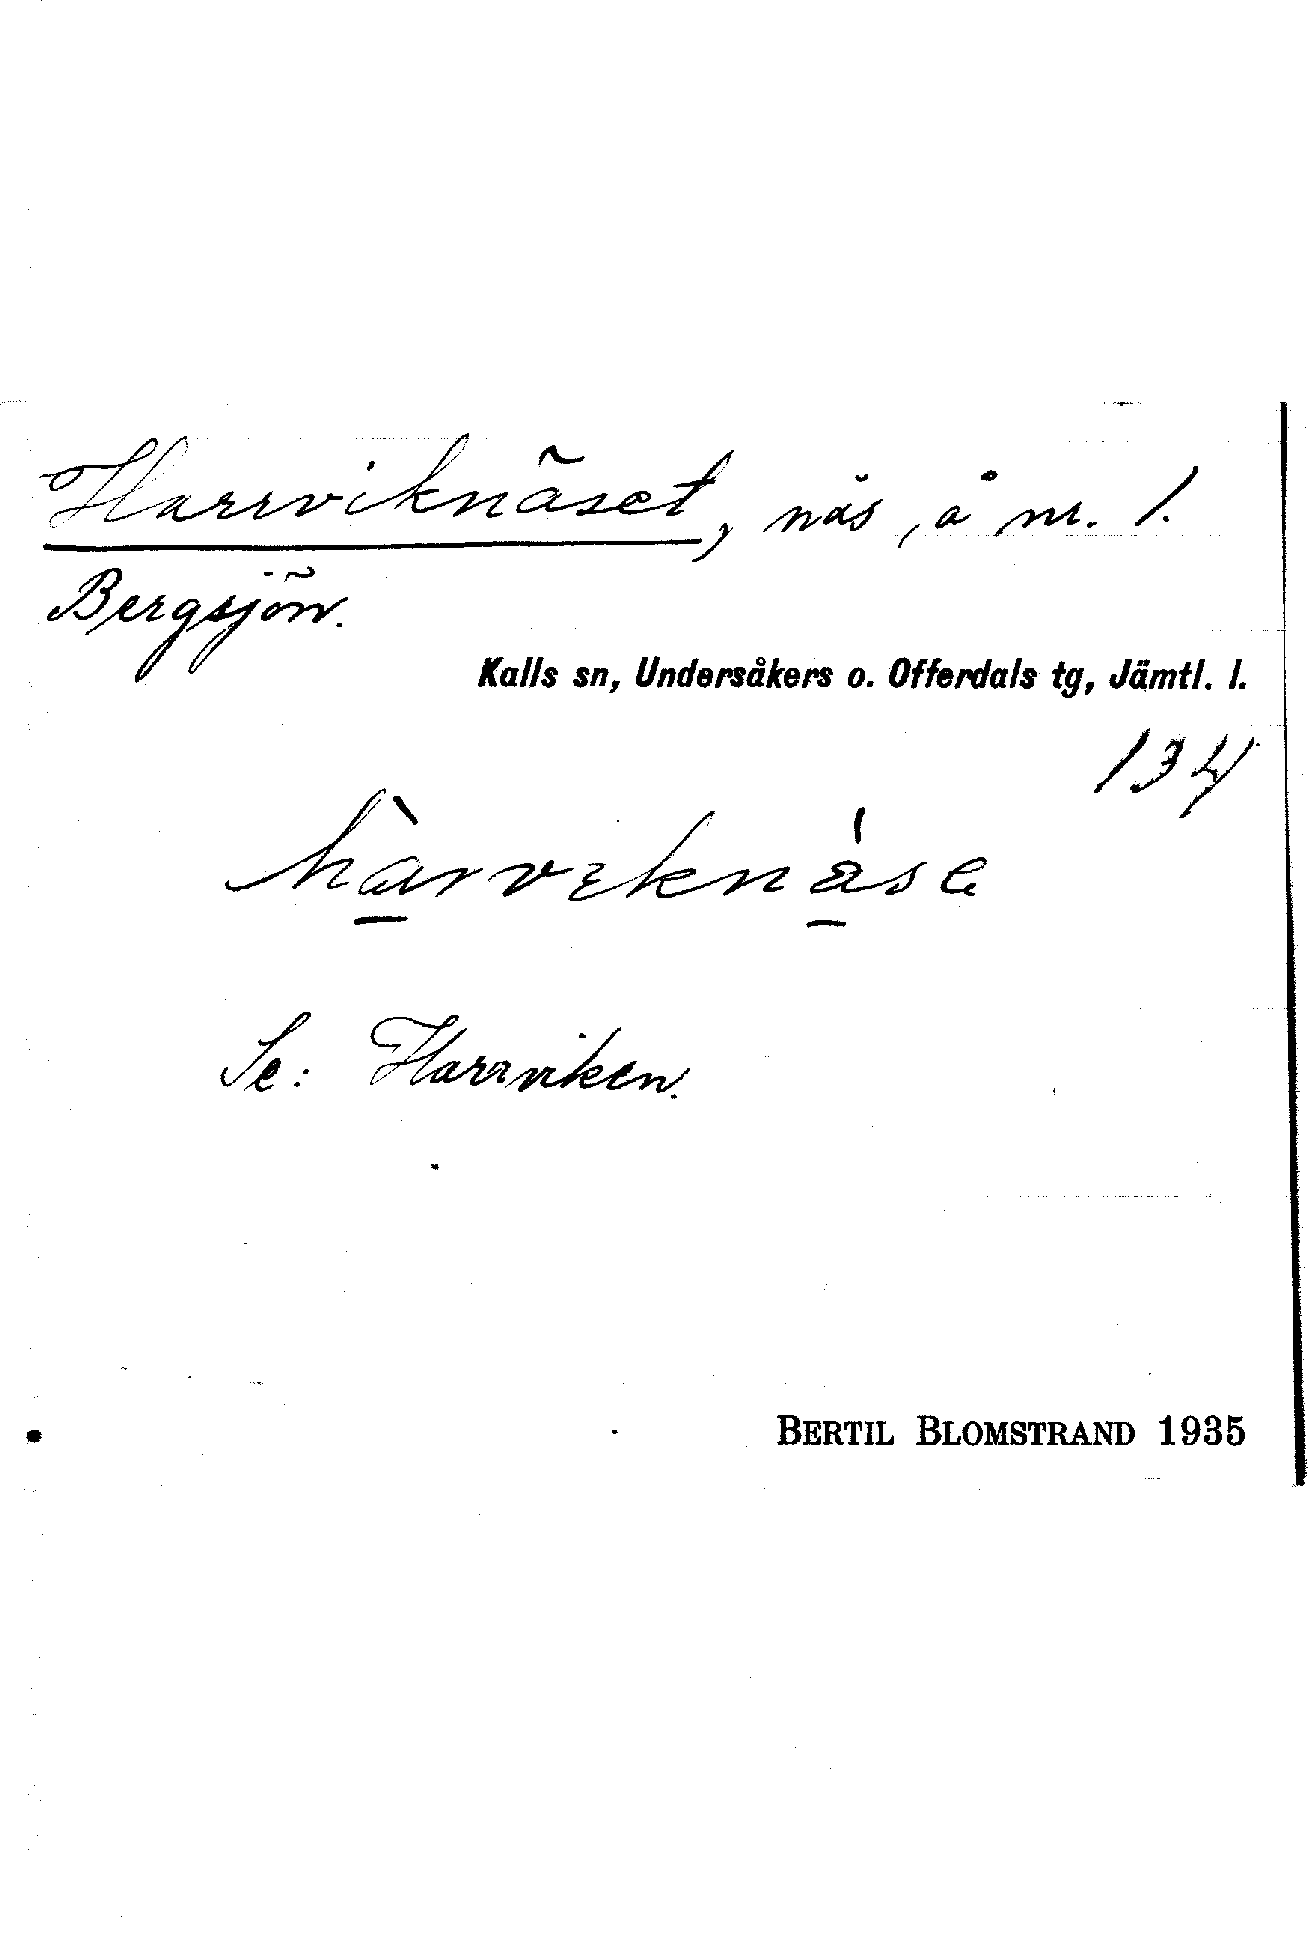 Harrviknäset, näs, å nr. 1.
Bergsjön.
Kalls sn, Undersåkers o. Offerdals tg, Jämtl. l.
134
hàrvıknása
Se: Harrviken.
BERTIL BLOMSTRAND 1935